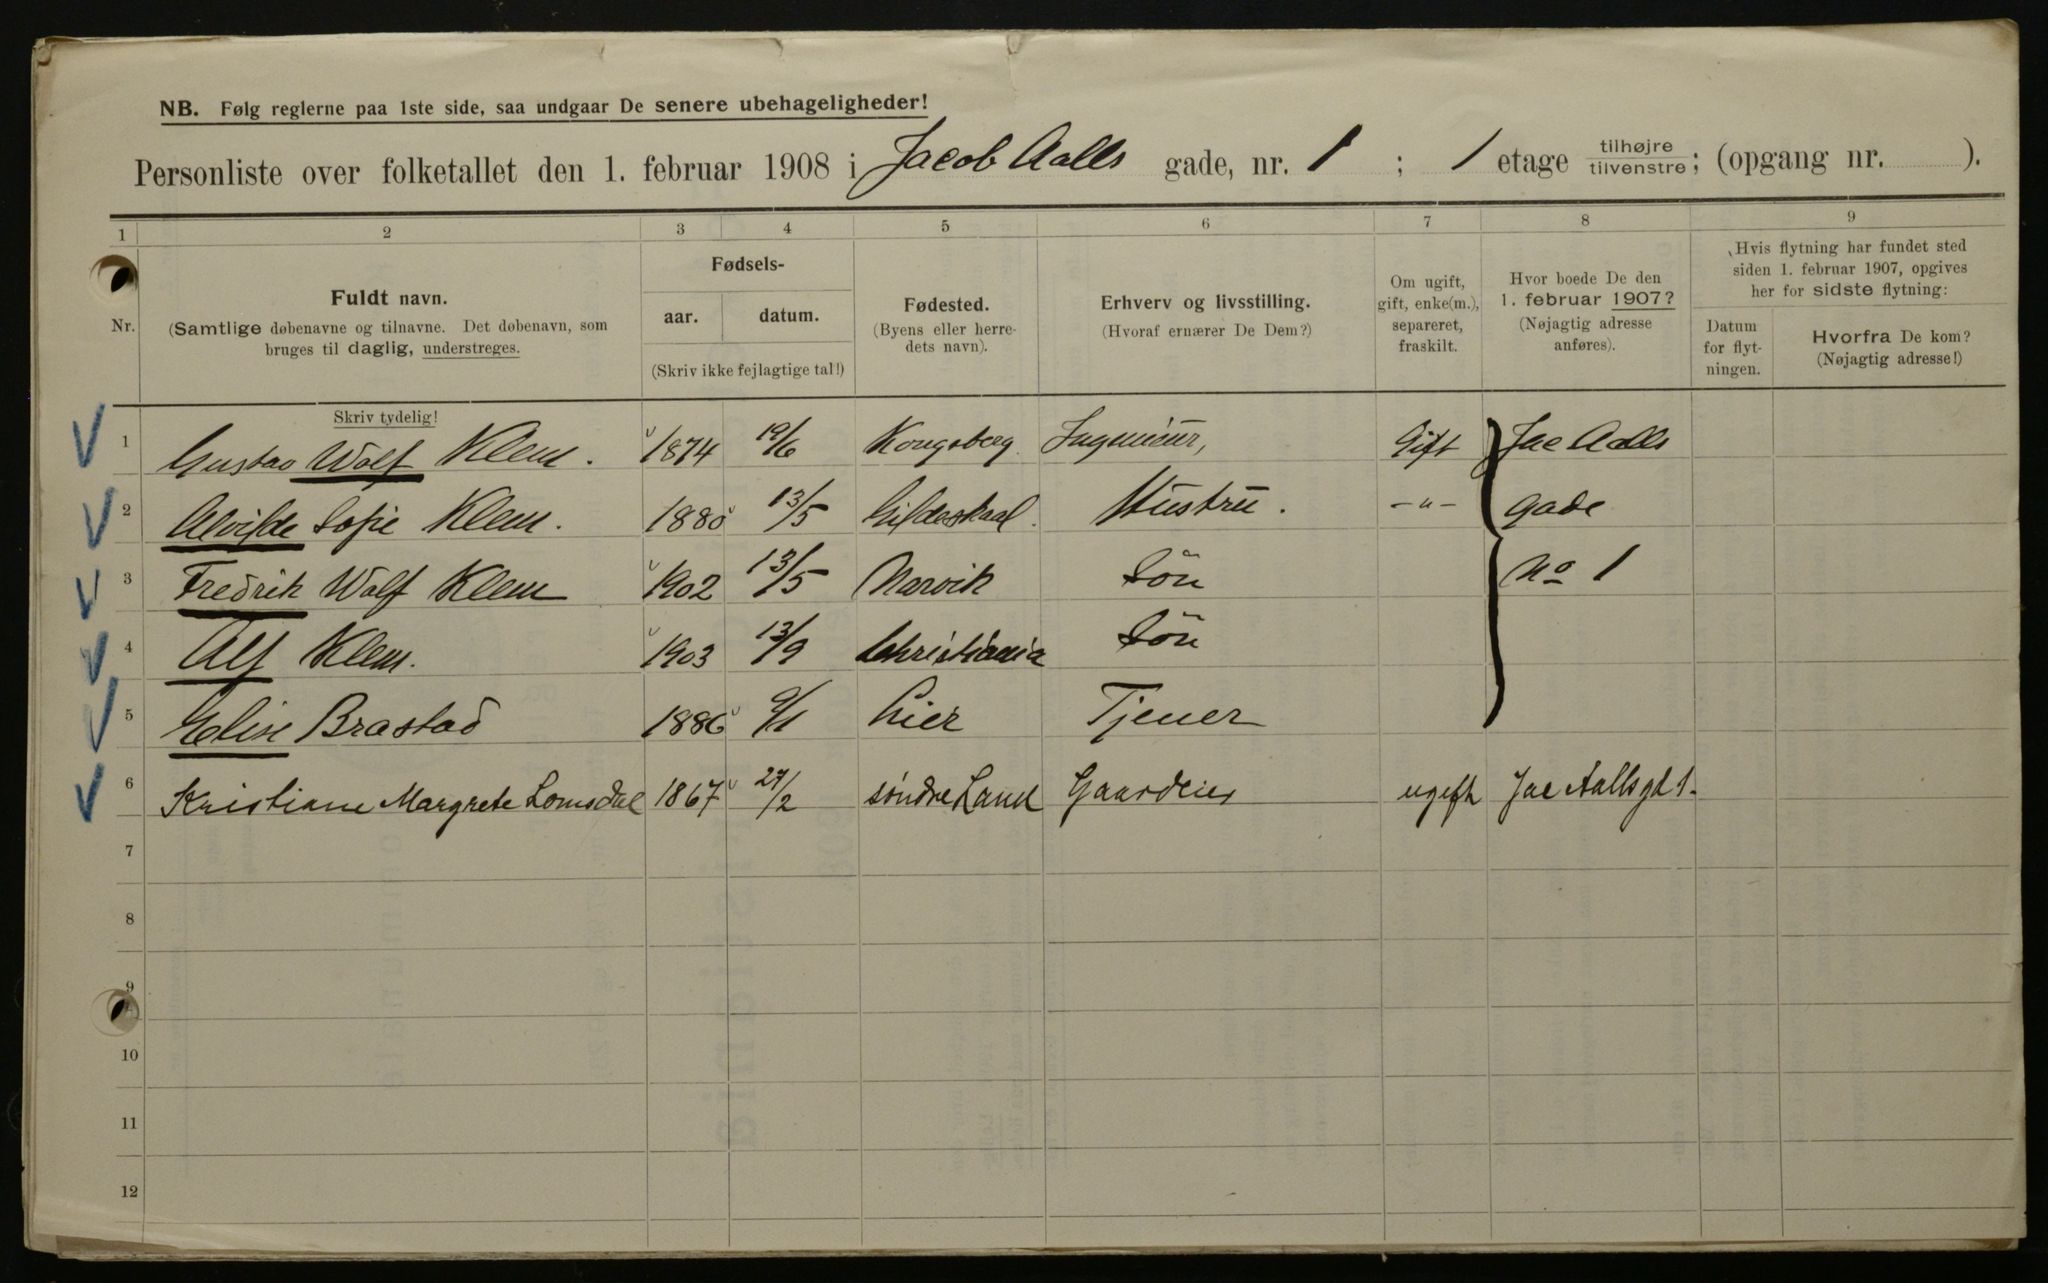 NB. Følg reglerne paa 1ste side, saa undgaar De senere ubehageligheder!
Personliste over folketallet den 1. februar 1908 i Jacob Aalls gade, nr. 1 ; 1 etage tilhøjre / tilvenstre ; (opgang nr. ).
1 2 3 4 5 6 7 8 9
Nr.
Fuldt navn.
(Samtlige døbenavne og tilnavne. Det døbenavn, som
bruges til daglig, understreges.
Skriv tydelig!
Fødsels-
aar. datum.
(Skriv ikke fejlagtige tal!)
Fødested.
(Byens eller herre-
dets navn).
Erhverv og livsstilling.
(Hvoraf ernærer De Dem?)
Om ugift,
gift, enke(m.),
separeret,
fraskilt.
Hvor boede De den
1. februar 1907?
(Nøjagtig adresse
anføres).
Hvis flytning har fundet sted
siden 1. februar 1907, opgives
her for sidste flytning:
Datum
for flyt-
ningen.
Hvorfra De kom?
(Nøjagtig adresse!)
1 Gustav Wolf Klem. 1874 19/6 Kongsberg Ingeniör, Gift Jac Aalls
2 Alvilde Sofie Klem. 1880 13/5 Gildeskaal. Hustru. -"- gade
3 Fredrik Wolf Klem 1902 13/5 Narvik Sön No 1
4 Alf Klem. 1903 13/9 Christiania Sön
5 Elise Brastad 1886 /1 Lier Tjener
6 Kristiane Margrete Lomsdal 1867 27/2 søndre Land Gaardeier ugift Jac Aallsgd 1.
7
8
9
10
11
12